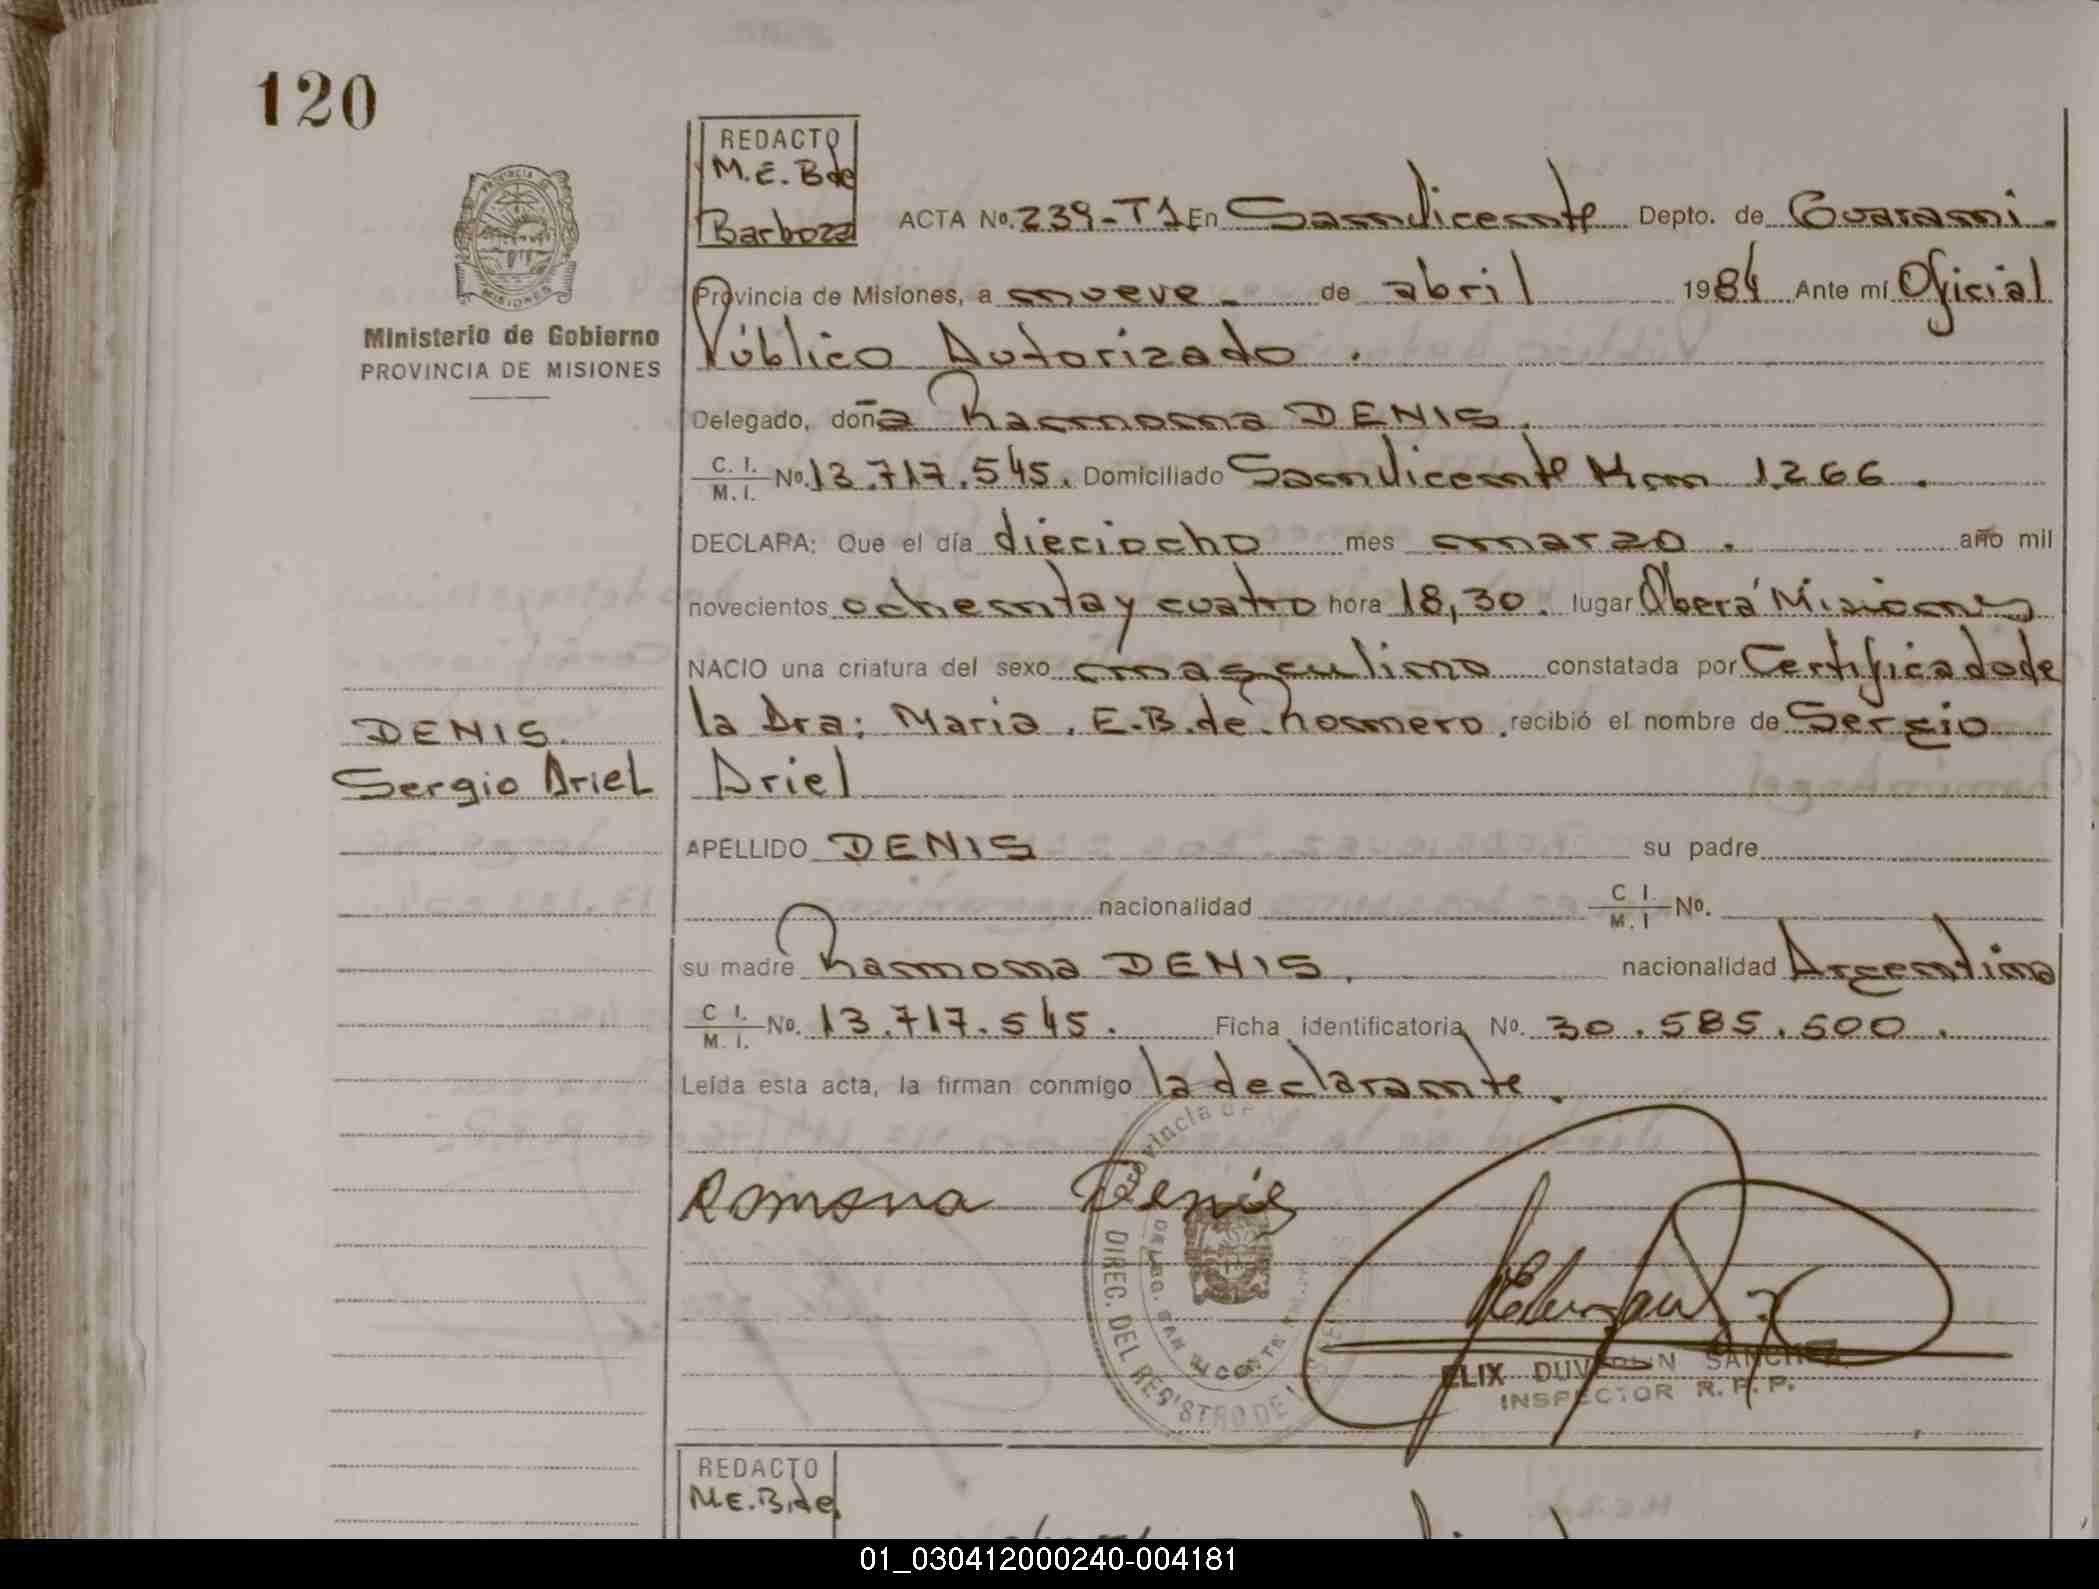 120
REDACTO
M.E.B de
Barboza
ACTA No. 239-T1 En San Vicente Depto. de Guarani.
Provincia de Misiones, a nueve de abril 1984 Ante mí Oficial
Público Autorizado.
Ministerio de Gobierno
PROVINCIA DE MISIONES
Delegado, doña Ramona DENIS.
C. I.
M. I. No. 13.717.545. Domiciliado San Vicente Km 1266.
DECLARA: Que el día dieciocho mes marzo. año mil
novecientos ochenta y cuatro hora 18,30. lugar Oberá Misiones
NACIO una criatura del sexo masculino constatada por Certificado de
la Dra: Maria. E.B. de Romero. recibió el nombre de Sergio
Ariel
DENIS.
Sergio Ariel
APELLIDO DENIS su padre
nacionalidad C I. M. I No.
su madre Ramona DENIS. nacionalidad Argentina
C I.
M. I. No. 13.717.545. Ficha identificatoria No. 30.585.500.
Leída esta acta, la firman conmigo la declarante.
Ramona Denis
Provincia de
DIREC. DEL REGISTRO DE
DELEG. SAN VICENTE
ELIX DUV SANCHEZ
INSPECTOR R. P. P.
REDACTO
M.E.B. de
01_030412000240-004181